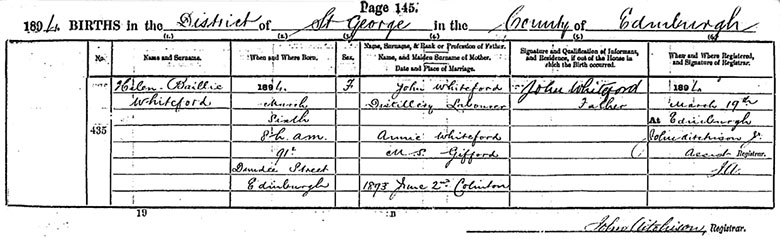 Page 145.
1894. BIRTHS in the District of St George in the County of Edinburgh
(1.) (2.) (3.) (4.) (5.) (6.)
No. Name and Surname. When and Where Born. Sex. Name, Surname, & Rank or Profession of Father. Name, and Maiden Surname of Mother. Date and Place of Marriage. Signature and Qualification of Informant, and Residence, if out of the House in which the Birth occurred. When and Where Registered, and Signature of Registrar.
Helen Baillie 1894. F John Whiteford John Whiteford 1894
Whiteford March Distillery Labourer Father March 19th
Sixth At Edinburgh
435 8h. am. Annie Whiteford John Aitchison Jr
91 M.S. Gifford Assist Registrar.
Dundee Street JA.
Edinburgh 1893 June 2nd Colinton
19 B
John Aitchison, Registrar.